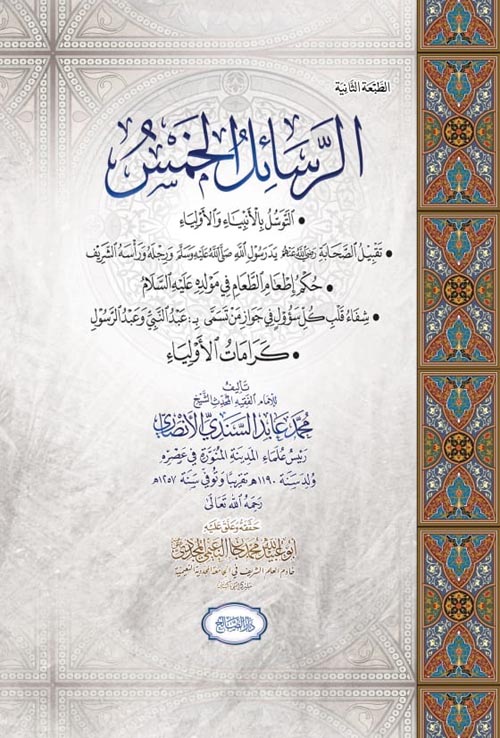 الطَّبْعَة الثَّانِيَة
الرَّسَائِلُ الخَمْسُ
• التَّوَسُّلُ بِالأَنْبِيَاءِ وَالأَوْلِيَاءِ
• تَقْبِيلُ الصَّحَابَةِ رَضِيَ اللهُ عَنْهُمْ يَدَ رَسُولِ اللَّهِ صَلَّى اللهُ عَلَيْهِ وَسَلَّمَ وَرِجْلَهُ وَرَأْسَهُ الشَّرِيفَ
• حُكْمُ إِطْعَامِ الطَّعَامِ فِي مَوْلِدِهِ عَلَيْهِ السَّلَامُ
• شِفَاءُ قَلْبِ كُلِّ سَؤُولٍ فِي جَوَازِ مَنْ تَسَمَّى بِـ: عَبْدِ النَّبِيِّ وَعَبْدِ الرَّسُولِ
• كَرَامَاتُ الأَوْلِيَاءِ
تَأْلِيفُ
الإمَام الفَقِيه المُحَدِّث الشَّيْخ
مُحَمَّد عَابِد السِّنْدِيِّ الأَنْصَارِيِّ
رَئِيسُ عُلَمَاءِ المَدِينَةِ المُنَوَّرَةِ فِي عَصْرِهِ
وُلِدَ سَنَةَ ١١٩٠هـ تَقْرِيبًا وَتُوُفِّيَ سَنَةَ ١٢٥٧هـ
رَحِمَهُ اللهُ تَعَالَى
حَقَّقَهُ وَعَلَّقَ عَلَيْهِ
أبو عبد الله محمد جان النعيمي المجددي
خادم العلم الشريف في الجامعة المجددية النعيمية
دار الصالح